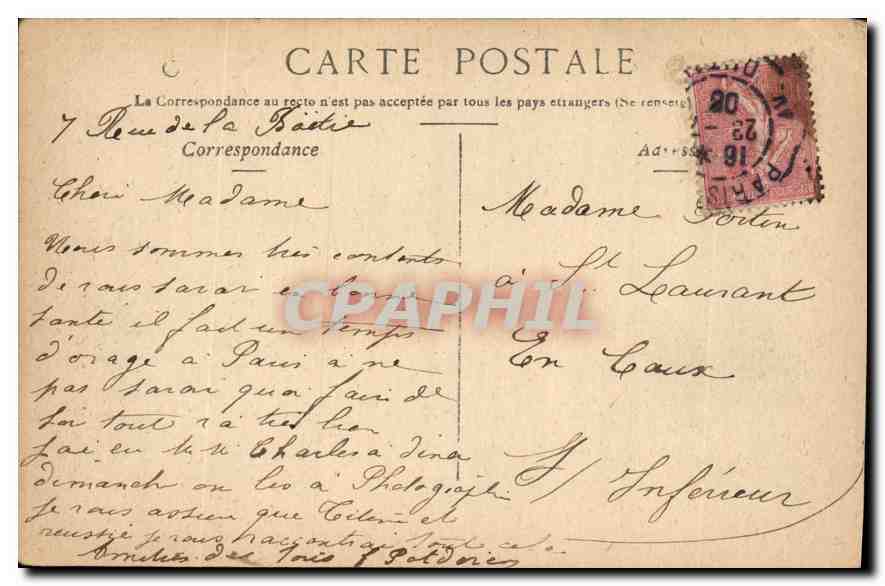 CARTE POSTALE
La Correspondance au recto n'est pas acceptée par tous les pays étrangers (Se renseig
7 Rue de la Boëtie
Correspondance
Adresse
PARIS
16
23
08
Cheri Madame
Nous sommes très contents
de vous savoir en bonne
santé il fait un temps
d'orage à Paris à ne
pas savoir quoi fair de
son tout va très bien
j'ai eu Charles à diner
dimanche on les à Photograph
je vous assure que
reussie je vous raccontrai tout cela
Amities de tous
Madame
à St Laurant
En Caux
S/ Inférieur
CPAPHIL